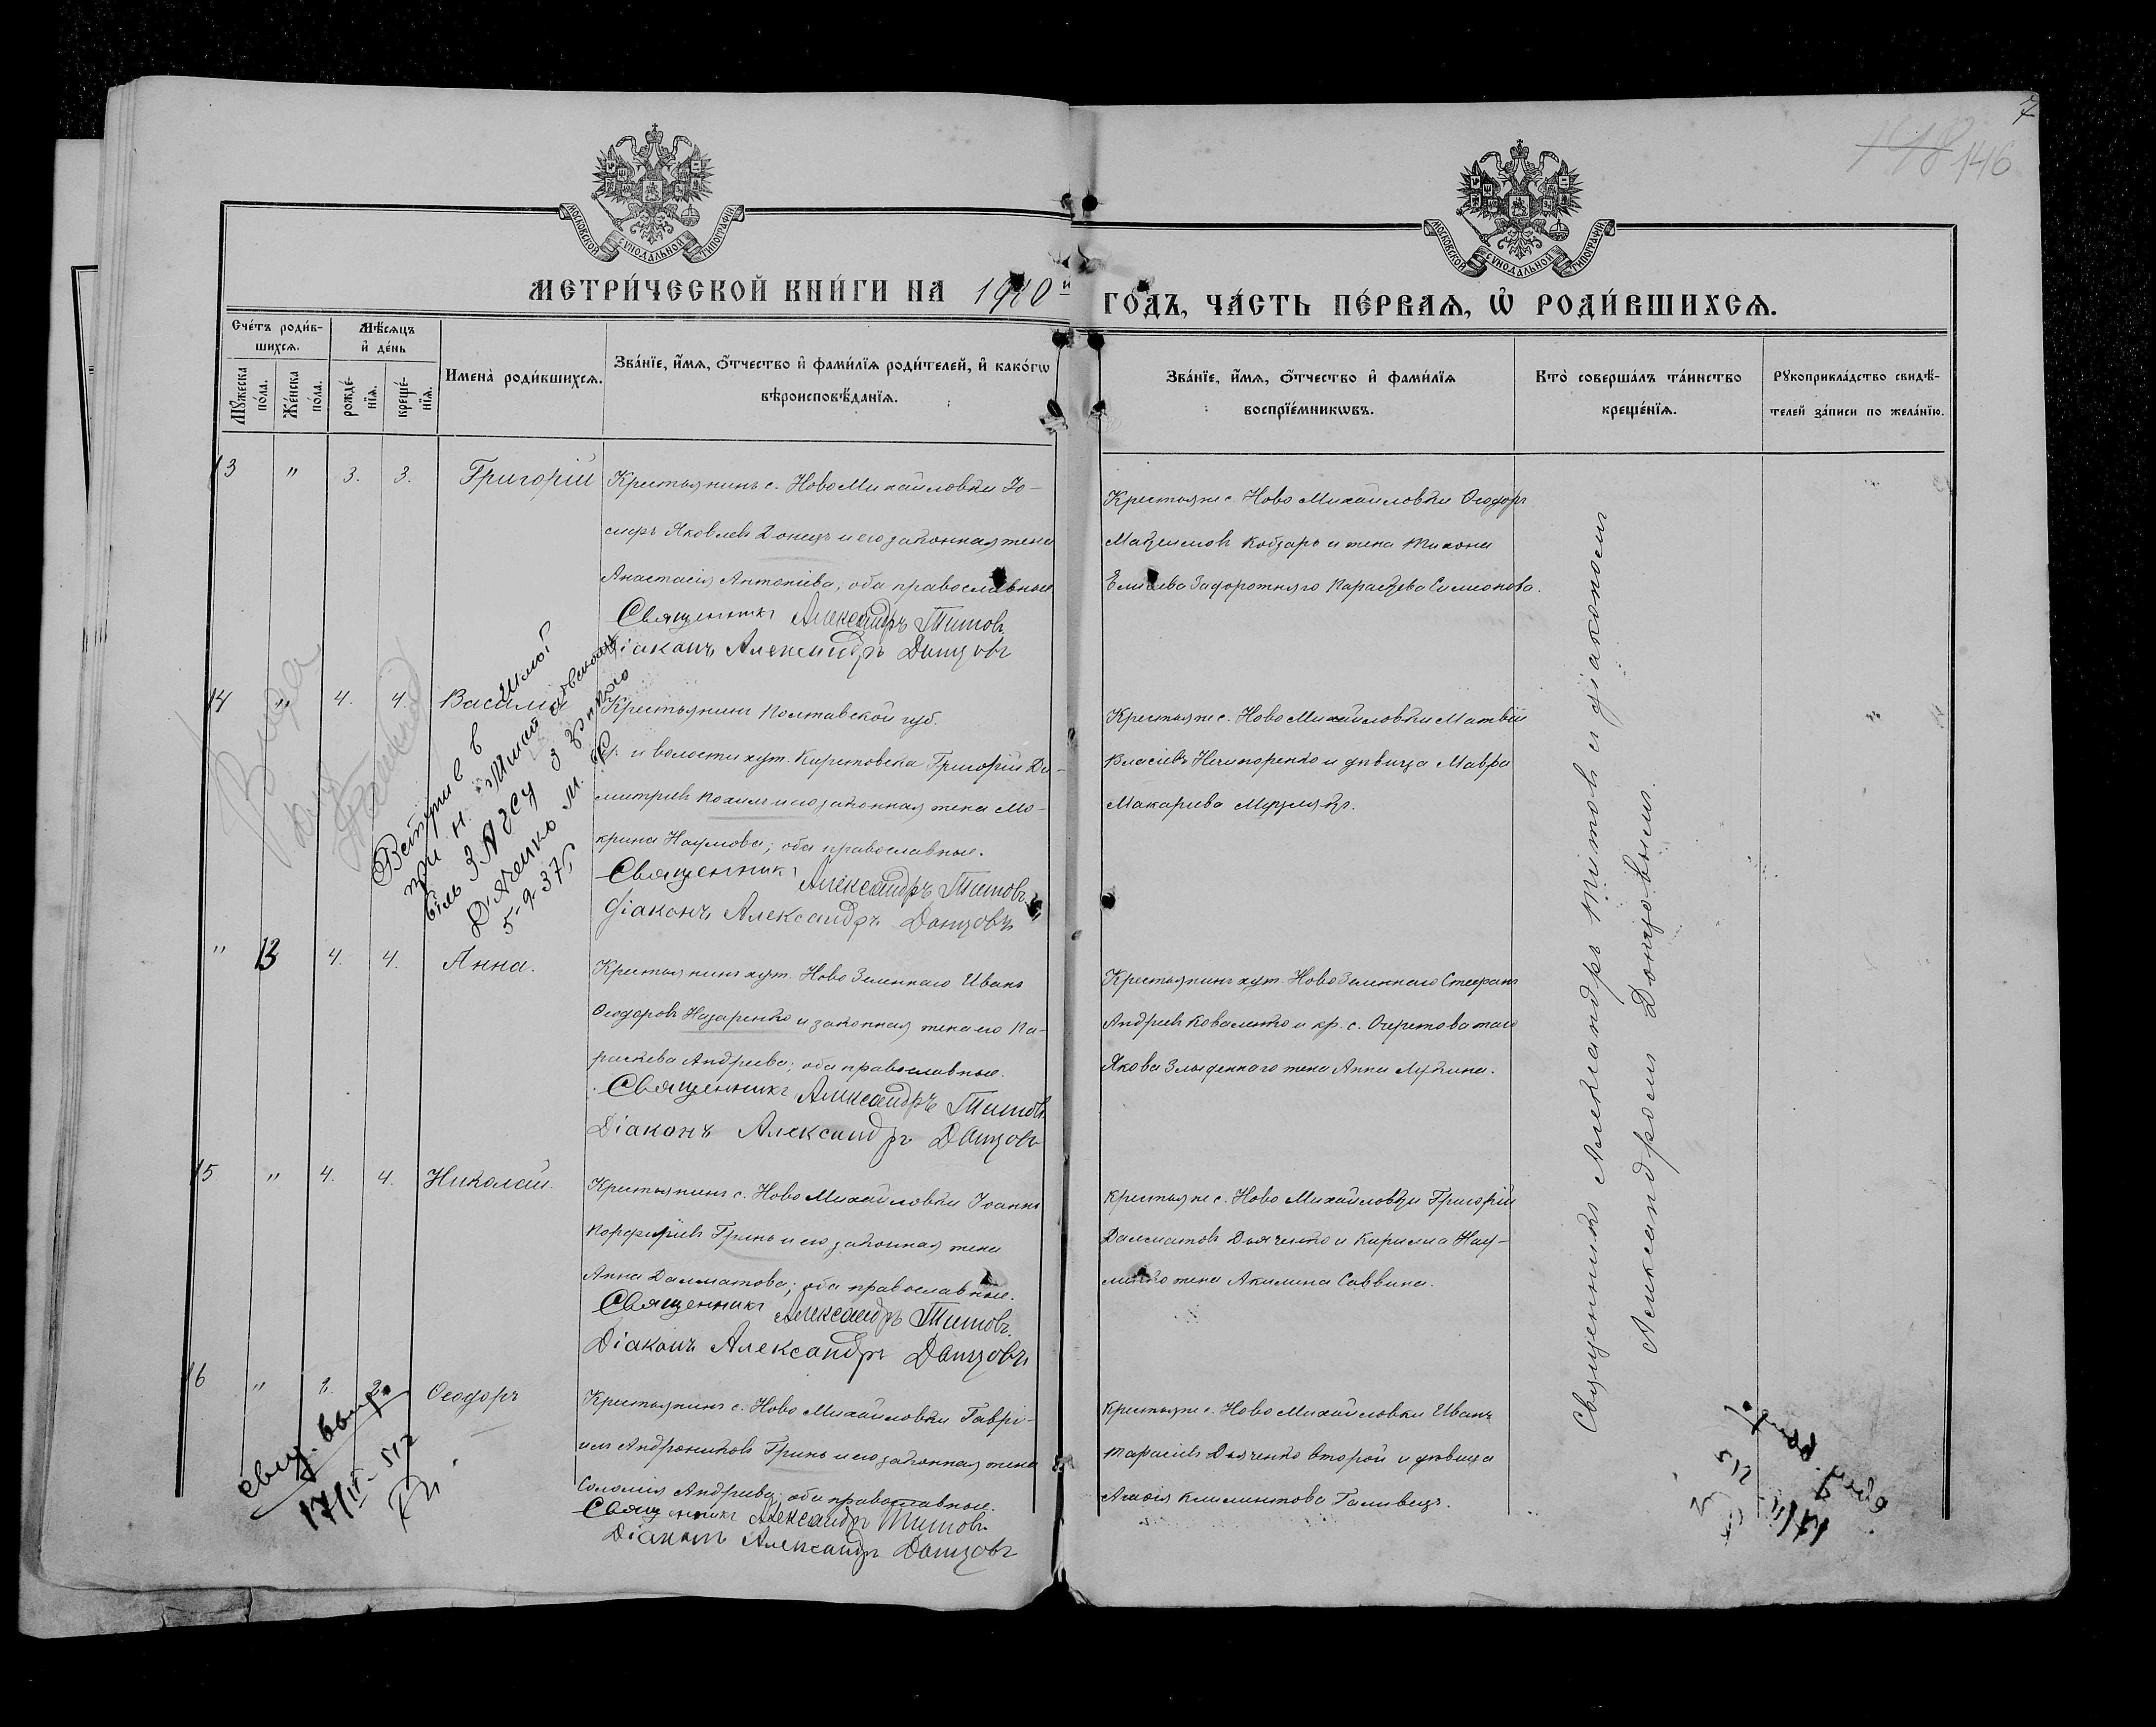 7
148 146
МОСКОВСКОЙ СѴНОДАЛЬНОЙ ТИПОГРАФІИ
МОСКОВСКОЙ СѴНОДАЛЬНОЙ ТИПОГРАФІИ
МЕТРИ́ЧЕСКОЙ КНИ́ГИ НА 1910й ГОДЪ, ЧА́СТЬ ПЕ́РВАѦ, Ѡ РОДИ́ВШИХСѦ.
Сче́тъ роди́в-
шихсѧ.
Мѣ́сѧцъ
и҆ де́нь
Мꙋ́жеска по́ла.
Же́нска по́ла.
рожде́-
нїѧ.
креще́-
нїѧ.
Имена̀ роди́вшихсѧ.
Зва́нїе, и҆́мѧ, ѻ҆́тчество и҆ фами́лїѧ роди́телей, и҆ како́гѡ
вѣроисповѣ́данїѧ.
Зва́нїе, и҆́мѧ, ѻ҆́тчество и҆ фами́лїѧ
воспрїе́мникѡвъ.
Кто̀ соверша́лъ та́инство
креще́нїѧ.
Рꙋкоприкла́дство свидѣ́-
телей за́писи по жела́нїю.
13 " 3. 3. Григорій
Крестьянинъ с. НовоМихайловки Іо-
сифъ Яковлевъ Донецъ и его законная жена
Анастасія Антоніева; оба православные
Священникъ Александръ Титовъ.
Діаконъ Александръ Донцовъ
Крестьяне с. Ново Михайловки Ѳеодоръ
Максимовъ Кобзарь и жена Тихона
Елисѣева Задорожняго Параскева Симонова.
14 " 4. 4. Василій
Крестьянинъ Полтавской губ.
и волости хут. Григорій Ди-
митріевъ Похилъ и его законная жена Мо-
крина Наумова; оба православные.
Священникъ Александръ Титовъ
Діаконъ Александръ Донцовъ
Крестьяне с. НовоМихайловки Матвѣй
Власіевъ Нечипоренко и дѣвица Мавра
Макарьева
В
при н.
біль ЗАГСУ з
Дяченко М.
5-9 37
" 13 4. 4. Анна.
Крестьянинъ хут. НовоЗеленнаго Иванъ
Ѳеодоровъ Назаренко и законная жена его Па-
раскева Андреева; оба православные.
Священникъ Александръ Титовъ
Діаконъ Александръ Донцовъ
Крестьянинъ хут. НовоЗеленнаго Стефанъ
Андреевъ Коваленко и кр. с. Очеретоватаго
Якова Злыденнаго жена Анна Лукина.
15 " 4. 4. Николай.
Крестьянинъ с. НовоМихайловки Іоаннъ
Порфирíевъ Гринь и его законная жена
Анна Далматова; оба православные.
Священникъ Александръ Титовъ.
Діаконъ Александръ Донцовъ
Крестьяне с. Ново Михайловки Григорій
Далматовъ Дьяченко и Кирилла Нау-
менко жена Акилина Саввина.
16 " 2. 2. Ѳеодоръ
Крестьянинъ с. Ново Михайловки Гаврі-
илъ Андрониковъ Гринь и его законная жена
Соломія Андреева; оба православные.
Священникъ Александръ Титовъ
Діаконъ Александръ Донцовъ
Крестьяне с. Ново Михайловки Иванъ
Тарасіевъ Дьяченко второй и дѣвица
Агаѳія Климентова
Священникъ Александръ Титовъ и діакономъ
Александромъ Донцовымъ.
свид. выд.
17/II-